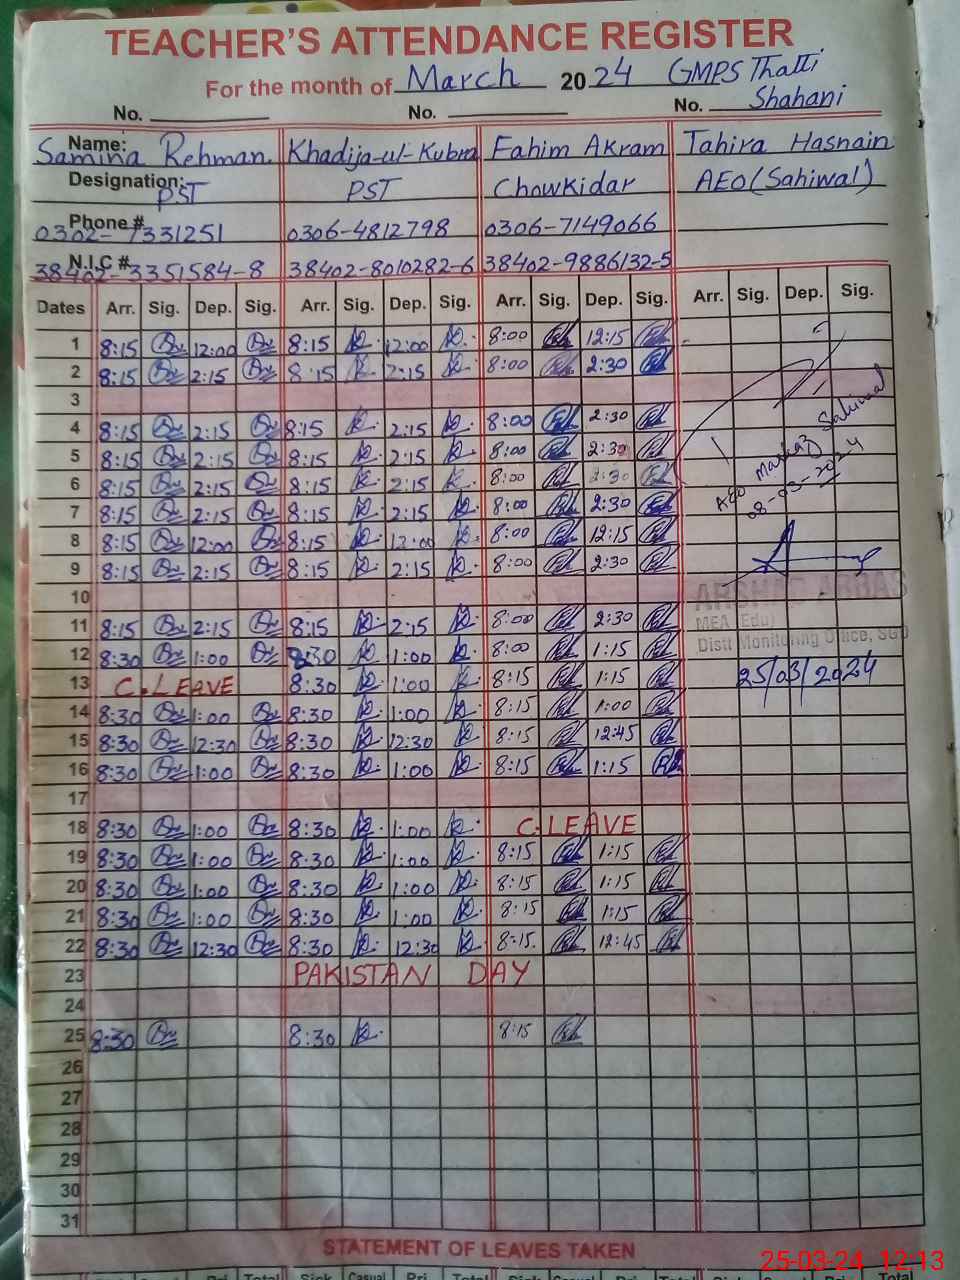 TEACHER'S ATTENDANCE REGISTER
For the month of March 2024 GMPS Thatti
Shahani
No. No. No.
Name: Samina Rehman Khadija-ul-Kubra Fahim Akram Tahira Hasnain
Designation: PST PST Chowkidar AEO (Sahiwal)
Phone # 0302-7331251 0306-4812798 0306-7149066
N.I.C # 38402-3351584-8 38402-8010282-6 38402-9886132-5
Dates Arr. Sig. Dep. Sig. Arr. Sig. Dep. Sig. Arr. Sig. Dep. Sig. Arr. Sig. Dep. Sig.
1 8:15 12:00 8:15 12:00 8:00 12:15
2 8:15 2:15 8:15 2:15 8:00 2:30
3
4 8:15 2:15 8:15 2:15 8:00 2:30
5 8:15 2:15 8:15 2:15 8:00 2:30
6 8:15 2:15 8:15 2:15 8:00 2:30
7 8:15 2:15 8:15 2:15 8:00 2:30
8 8:15 12:00 8:15 12:00 8:00 12:15
9 8:15 2:15 8:15 2:15 8:00 2:30
10
11 8:15 2:15 8:15 2:15 8:00 2:30
12 8:30 1:00 8:30 1:00 8:00 1:15
13 C.LEAVE 8:30 1:00 8:15 1:15
14 8:30 1:00 8:30 1:00 8:15 1:00
15 8:30 12:30 8:30 12:30 8:15 12:45
16 8:30 1:00 8:30 1:00 8:15 1:15
17
18 8:30 1:00 8:30 1:00 C.LEAVE
19 8:30 1:00 8:30 1:00 8:15 1:15
20 8:30 1:00 8:30 1:00 8:15 1:15
21 8:30 1:00 8:30 1:00 8:15 1:15
22 8:30 12:30 8:30 12:30 8:15 12:45
23 PAKISTAN DAY
24
25 8:30 8:30 8:15
26
27
28
29
30
31
AEO Markaz Sahiwal
08-03-2024
ARSHAD ABBAS
MEA (Edu)
Distt Monitoring Office, SGD
25/03/2024
STATEMENT OF LEAVES TAKEN
25-03-24 12:13